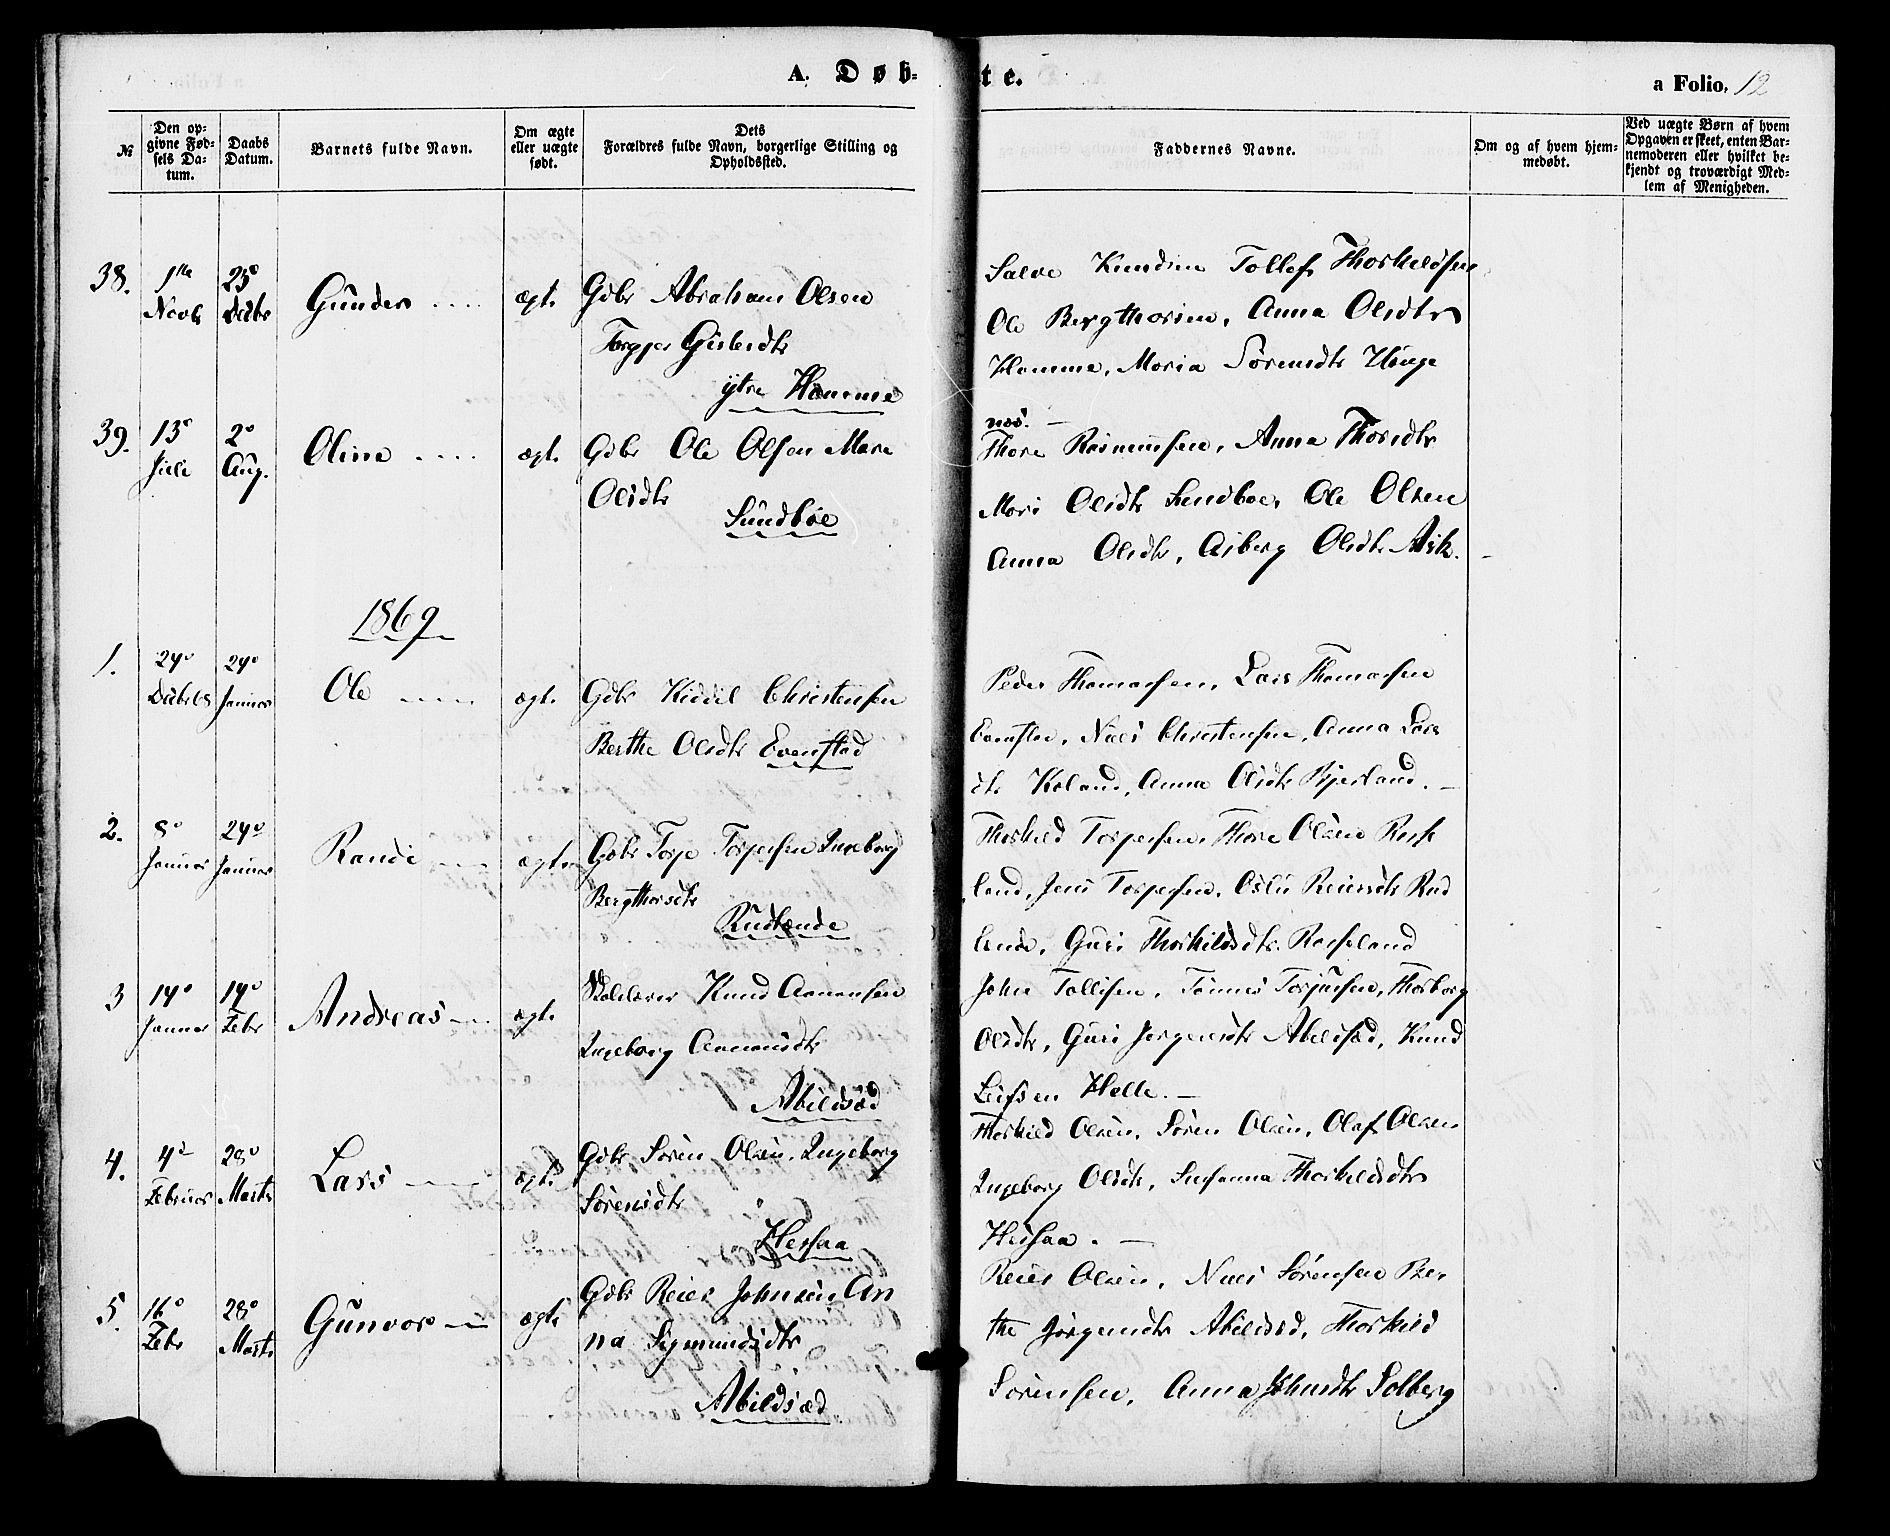 A. Døb-
te.
a Folio. 12
№
Den op-
givne Fød-
sels Da-
tum.
Daabs
Datum.
Barnets fulde Navn.
Om ægte
eller uægte
født.
Dets
Forældres fulde Navn, borgerlige Stilling og
Opholdssted.
Faddernes Navne.
Om og af hvem hjem-
medøbt.
Ved uægte Børn af hvem
Opgaven er skeet, enten Bar-
nemoderen eller hvilket be-
kjendt og troværdigt Med-
lem af Menigheden.
38. 1ste Novb 25de Decbr Gunder ægt. Gdbr Abraham Olsen
Torgjer Gislesdtr
ytre Homme
Salve Knudsen Tollef Thorkeldsen
Ole Bergthorsen, Anna Olsdtr
Homme, Maria Sørensdtr Hauge
næs. —
39. 13de Juli 2de Aug. Oline ægt. Gdbr Ole Olsen Mare
Olsdtr
Sundbøe
Thore Rasmussen, Anna Thorsdtr
Mari Olsdtr Sundboe, Ole Olsen
Anna Olsdtr, Asberg Olsdtr Ask. —
1869
1. 24de Decbr 68 24de Januar Ole ægt. Gdbr Kiddel Christensen
Berthe Olsdtr Evenstad
Peder Thomassen, Lars Thomassen
Niels Christensen, Anna Lars
dtr Koland, Anna Olsdtr Bjerland. —
2. 8de Januar 24de Januar Randi ægt. Gdbr Torje Torjersen Ingeborg
Bergthorsdtr
Rudlende
Thorkild Torjersen, Thore Olsen Ros
land, Jens Torjersen, Oslu Reiersdtr Rud
lende, Guri Thorkildsdtr. Rosseland
3 14de Januar 14de Febr Andreas ægt. Skolelærer Knud Aanonsen
Ingeborg Aanonsdtr
Abildsæd
John Tollisen, Tønnes Torjusen, Thorborg
Olsdtr, Guri Jørgensdtr Abildsæd, Knud
Leifsen Helle. —
4. 4de Februar 28de Marts Lars ægt. Gdbr Søren Olsen, Ingeborg
Sørensdtr
Hessaa
Thorkild Olsen, Søren Olsen, Olaf Olsen
Ingeborg Olsdtr, Susanna Thorkildsdtr
Hessaa. —
5. 16de Febr 28de Marts Gunvor ægt. Gdbr Reier Johnsen An
na Sigmundsdtr
Abildsæd
Reier Olsen, Niels Sørensen Ber
the Jørgensdtr Abildsæd, Thorkild
Sørensen, Anna Johnsdtr Solberg